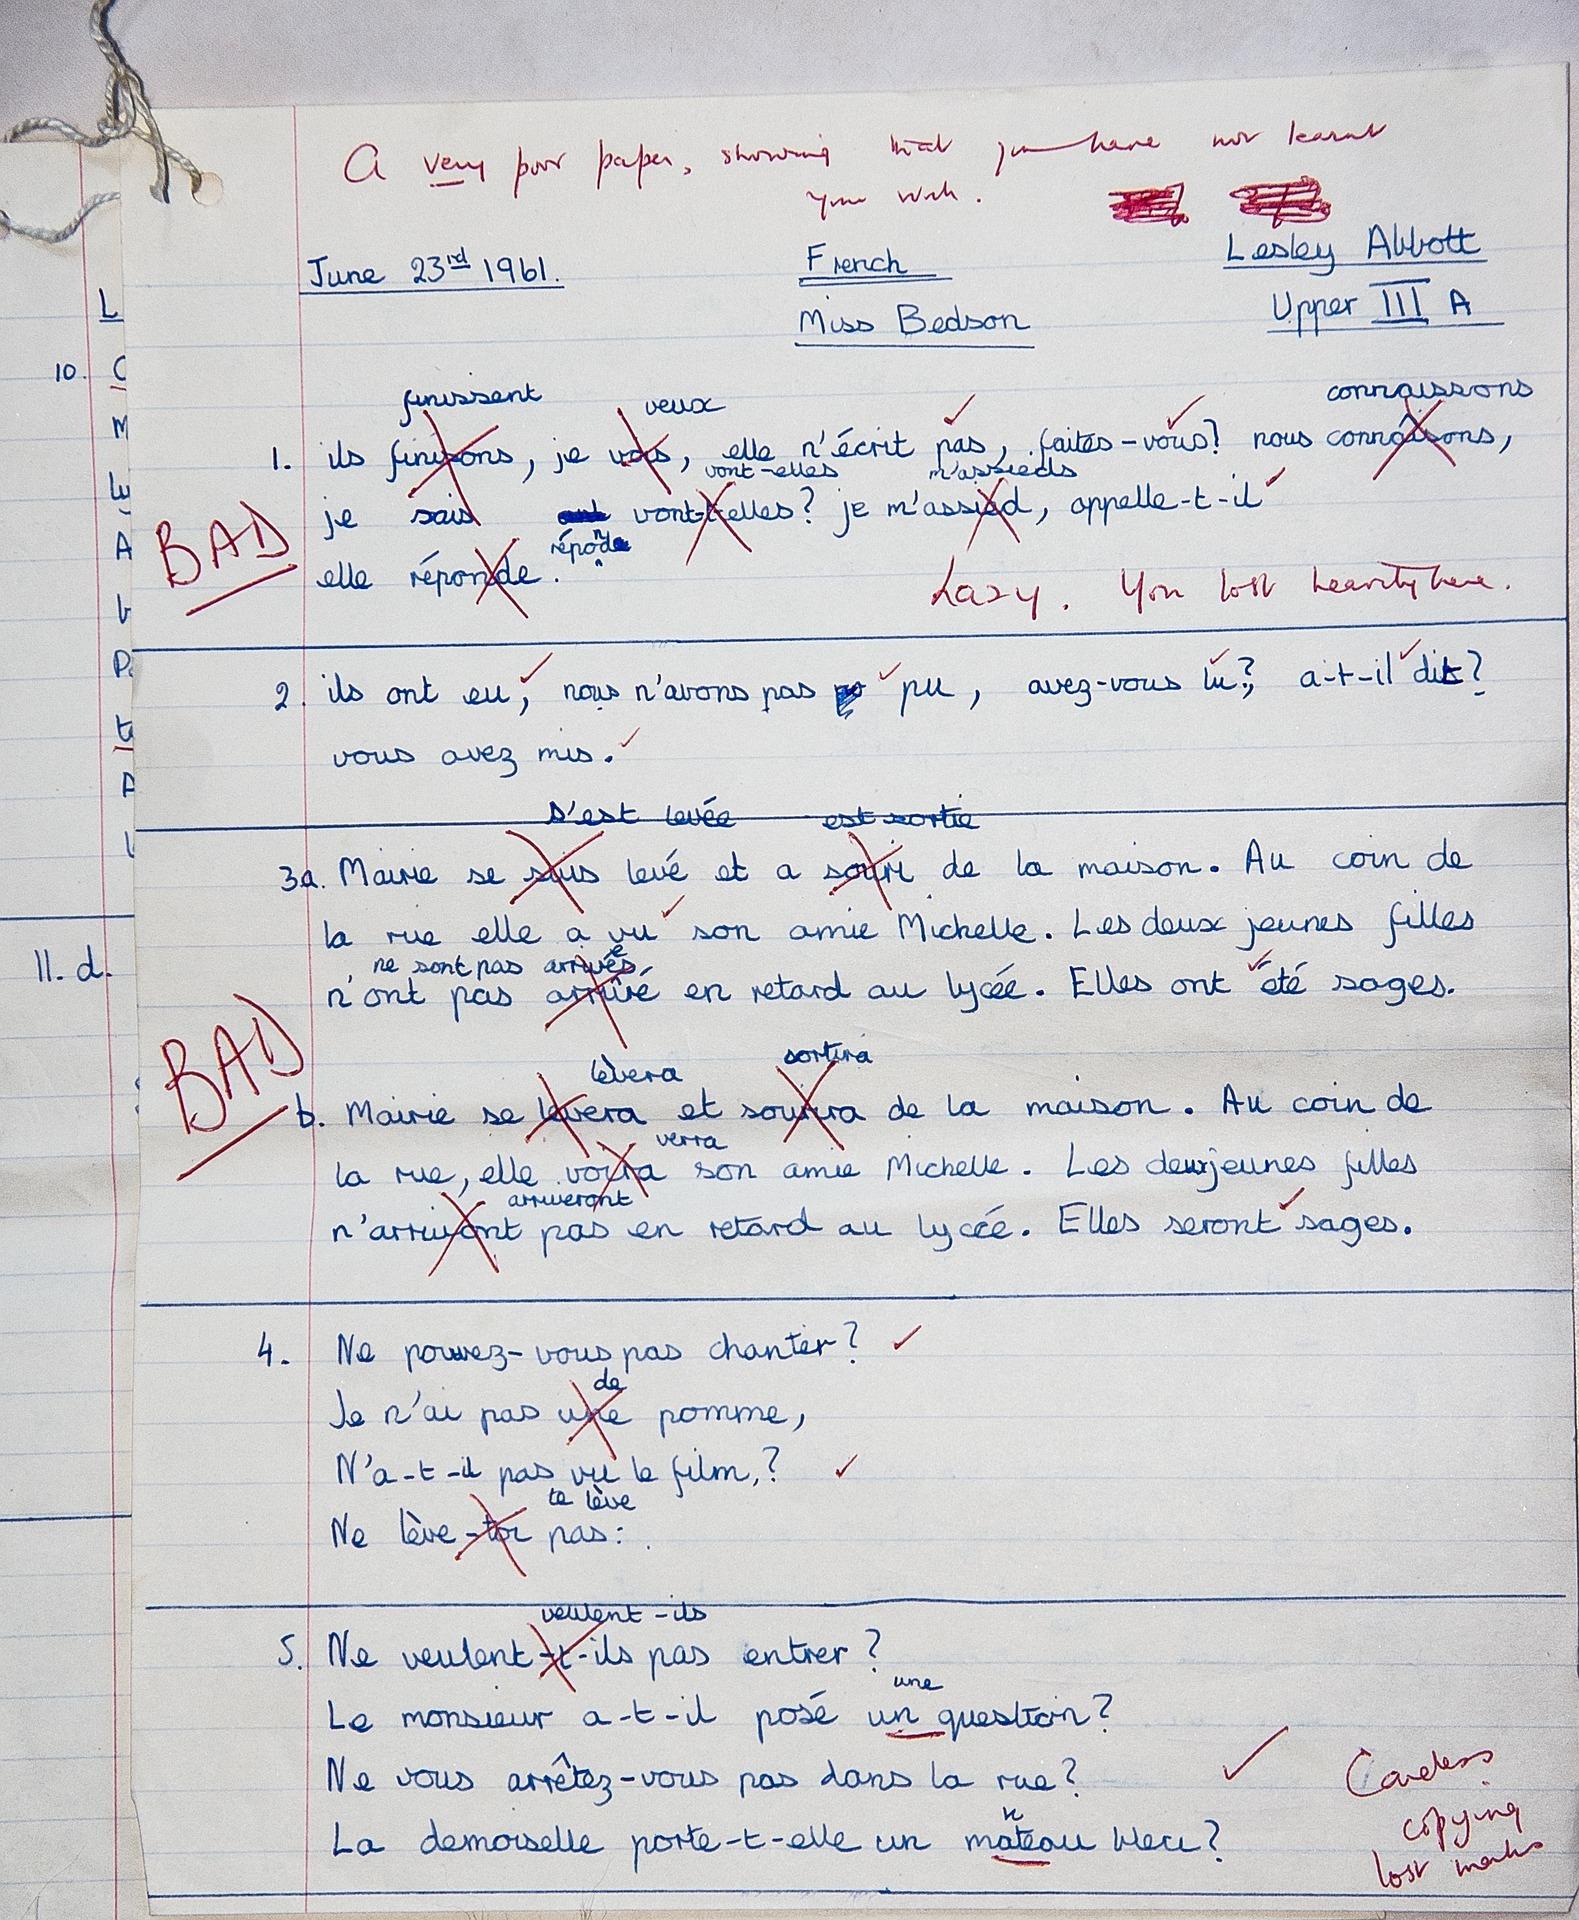 A very poor paper, showing that you have not learnt
your work.
June 23rd 1961.
French
Lesley Abbott
Miss Bedson
Upper III A
L
10. C
M
A
P
A
11. d.
finissent veux connaissons
1. ils finisons, je vois, elle n'écrit pas, faites-vous? nous connaîsons,
vont-elles m'assieds
je sais vont-t-elles? je m'assied, appelle-t-il
réponde
BAD
elle réponde.
Lazy. You lost heavily here.
2. ils ont eu, nous n'avons pas pu, avez-vous lu?, a-t-il dit?
vous avez mis.
s'est levée est sortie
3a. Mairie se suis levé et a souri de la maison. Au coin de
la rue elle a vu son amie Michelle. Les deux jeunes filles
ne sont pas arrivés
n'ont pas arrivé en retard au lycée. Elles ont été sages.
BAD
lèvera sortira
b. Mairie se levera et sourira de la maison. Au coin de
verra
la rue, elle voira son amie Michelle. Les deux jeunes filles
arriveront
n'arrivont pas en retard au lycée. Elles seront sages.
4. Ne pouvez-vous pas chanter?
de
Je n'ai pas une pomme,
N'a-t-il pas vu le film,?
te lève
Ne lève-toi pas:.
veulent-ils
5. Ne veulent-t-ils pas entrer?
une
Le monsieur a-t-il posé un question?
Ne vous arrêtez-vous pas dans la rue?
n
La demoiselle porte-t-elle un mateau bleu?
Careless
copying
lost marks